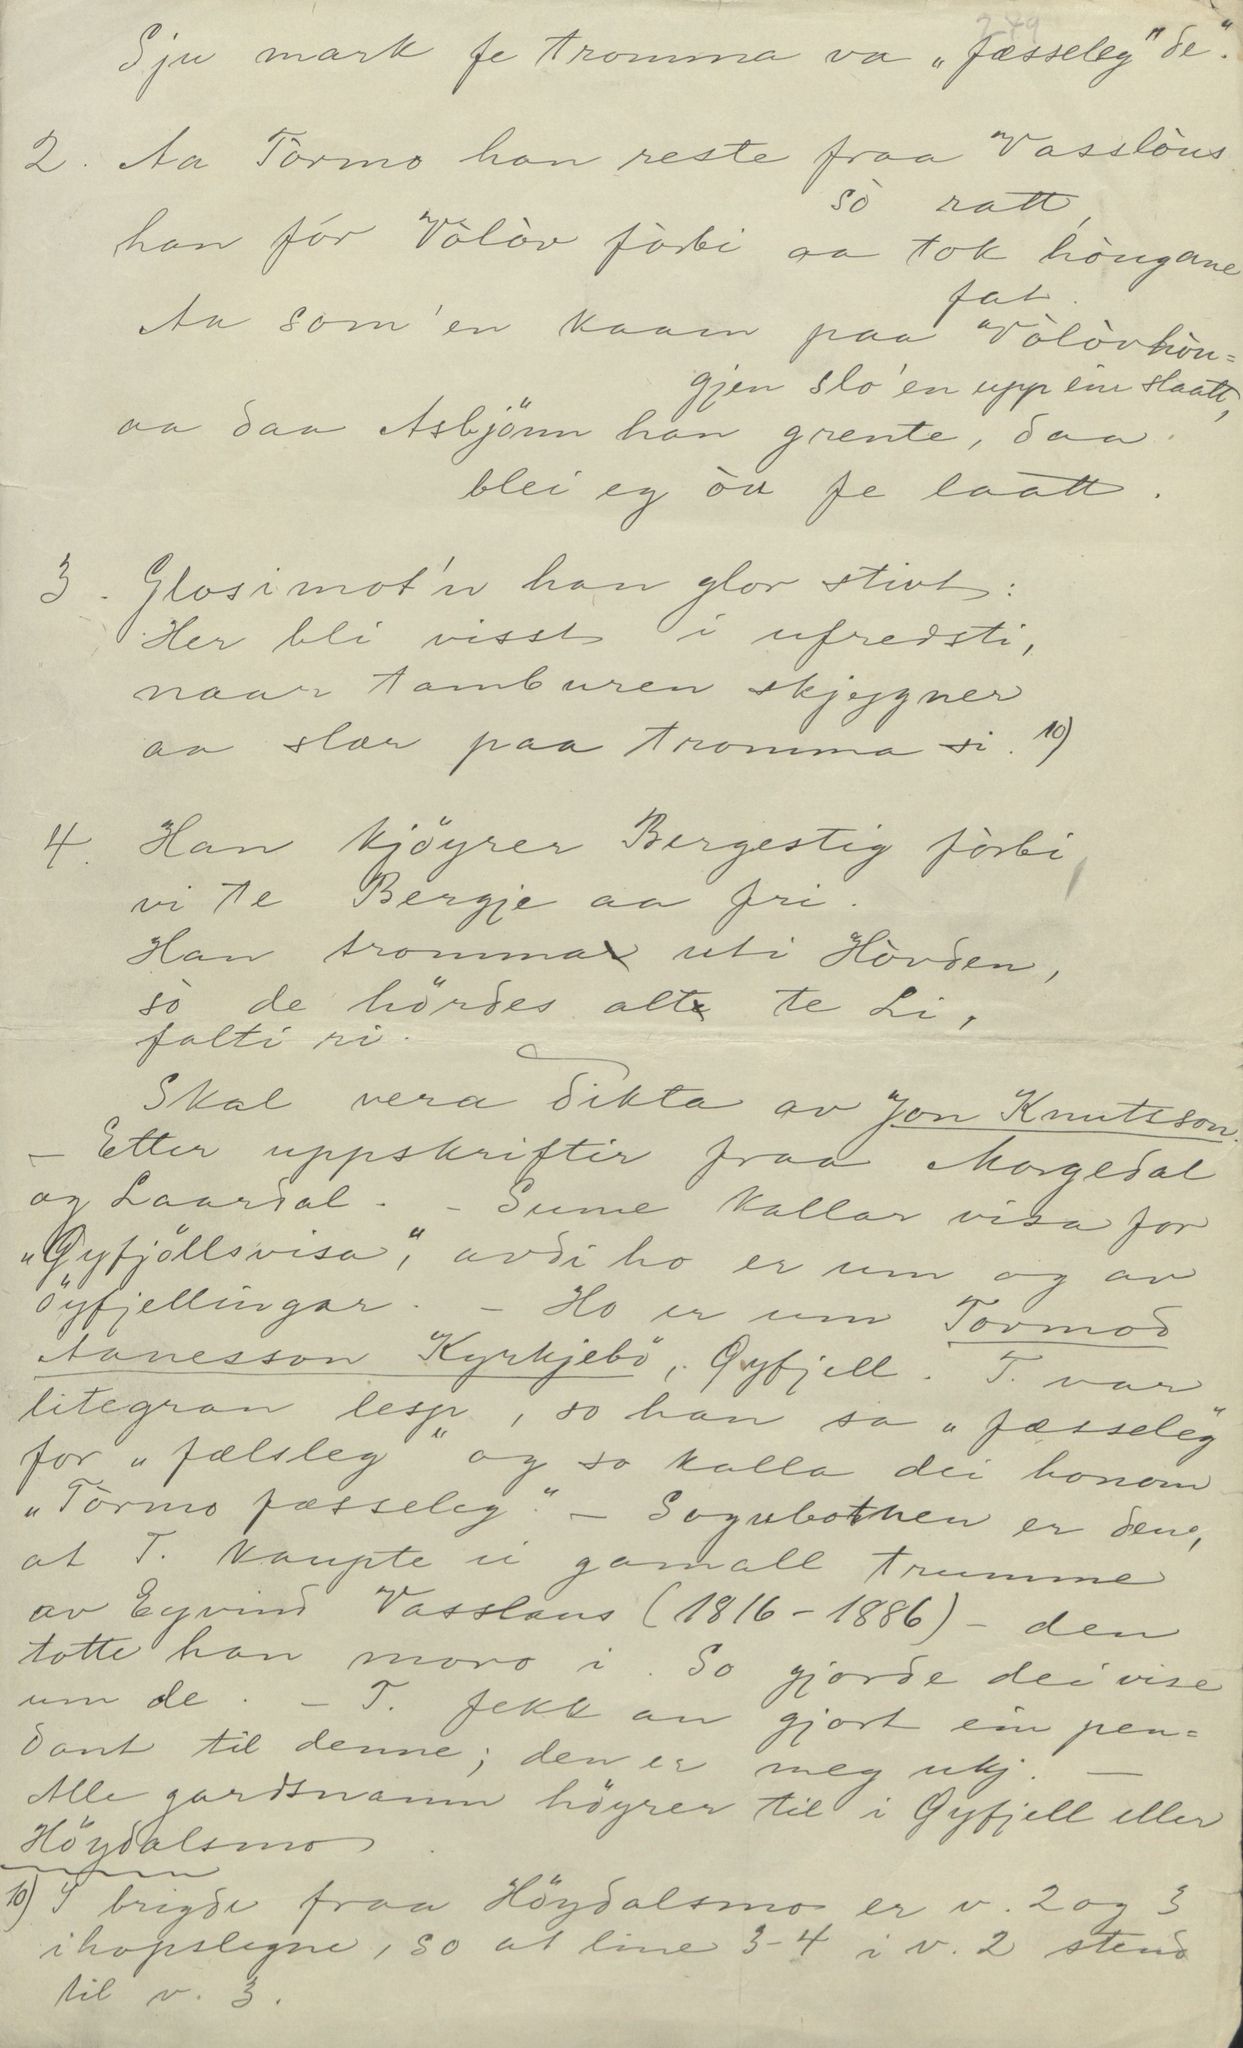 249
Sju mark fe tromma va „fæsseleg" de".
2. Aa Tòrmo han reste fraa Vasslòus
sò ratt,
han fór Vòlòv fòrbi aa tok hòugane
fat.
Aa som 'en kaam paa Vòlòvhòu=
gjen slo 'en upp ein slaatt,
aa daa Asbjönn han grente, daa
blei eg òu fe laatt.
3. Glosimot'n han glor stivt:
Her bli visst i ufredsti,
naar tamburen skjeggner
aa slær paa tromma si. 10)
4. Han kjöyrer Bergestig fòrbi
vi te Bergje aa fri.
Han tromma uti Hòvden,
sò de hördes alt te Li,
falti ri.
Skal vera dikta av Jon Knutsson.
– Etter uppskrifter fraa Morgedal
og Laardal. – Sume kallar visa for
„Öyfjöllsvisa", avdi ho er um og av
öyfjellingar. – Ho er um Tormod
Aanesson Kyrkjebö, Öyfjell. T. var
litegran lesp, so han sa „fæsseleg"
for „fælsleg" og so kalla dei honom
„Tòrmo fæsseleg." – Sogubotnen er den,
at T. kaupte ei gamall trumme
av Eyvind Vasslaus (1816–1886) – den
totte han moro i. So gjorde dei vise
um de. – T. fekk an gjort ein pen=
dant til denne; den er meg ukj. —
Alle gardsnamn höyrer til i Öyfjell eller
Höydalsmo.
10) I brigde fraa Höydalsmo er v. 2 og 3
ihopslegne, so at line 3-4 i v. 2 stend
til v. 3.